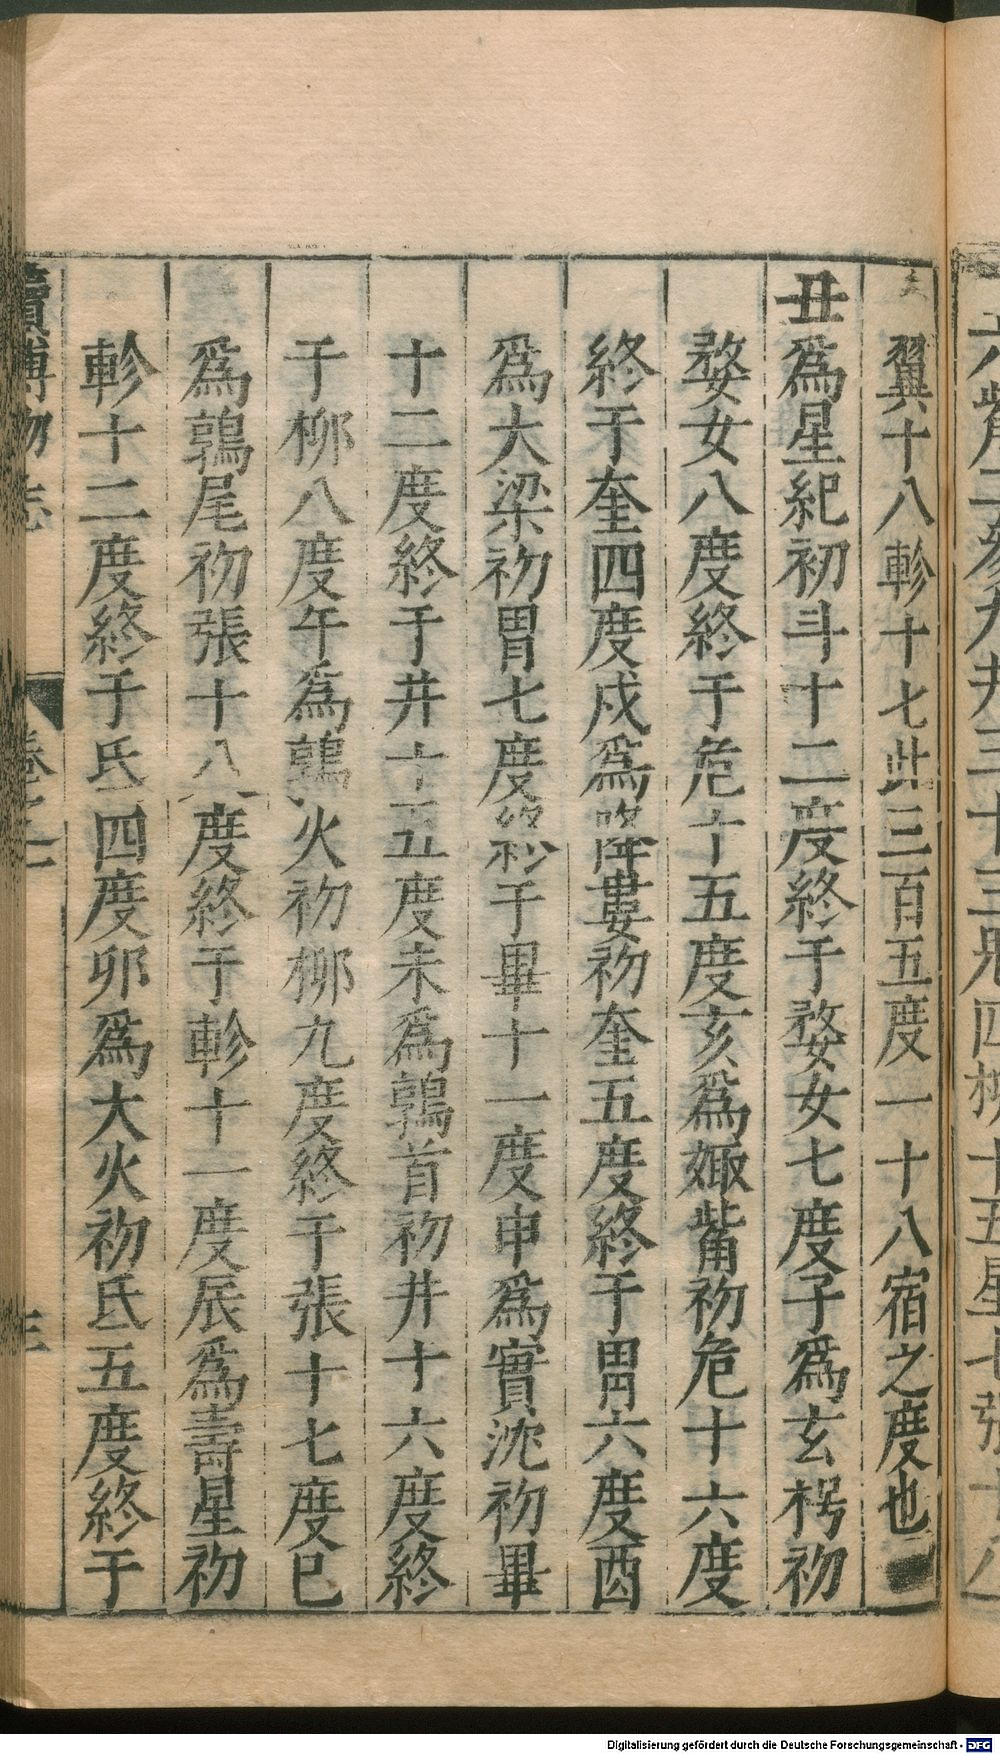 翼十八軫十七此三百五度一十八宿之度也
丑爲星紀初斗十二度終于婺女七度子爲玄枵初
婺女八度終于危十五度亥爲娵觜初危十六度
終于奎四度戌爲降婁初奎五度終于胃六度酉
爲大梁初胃七度終于畢十一度申爲實沈初畢
十二度終于井十五度未爲鶉首初井十六度終
于柳八度午爲鶉火初柳九度終于張十七度巳
爲鶉尾初張十八度終于軫十一度辰爲壽星初
軫十二度終于氐四度卯爲大火初氐五度終于
續博物志
Digitalisierung gefördert durch die Deutsche Forschungsgemeinschaft - DFG